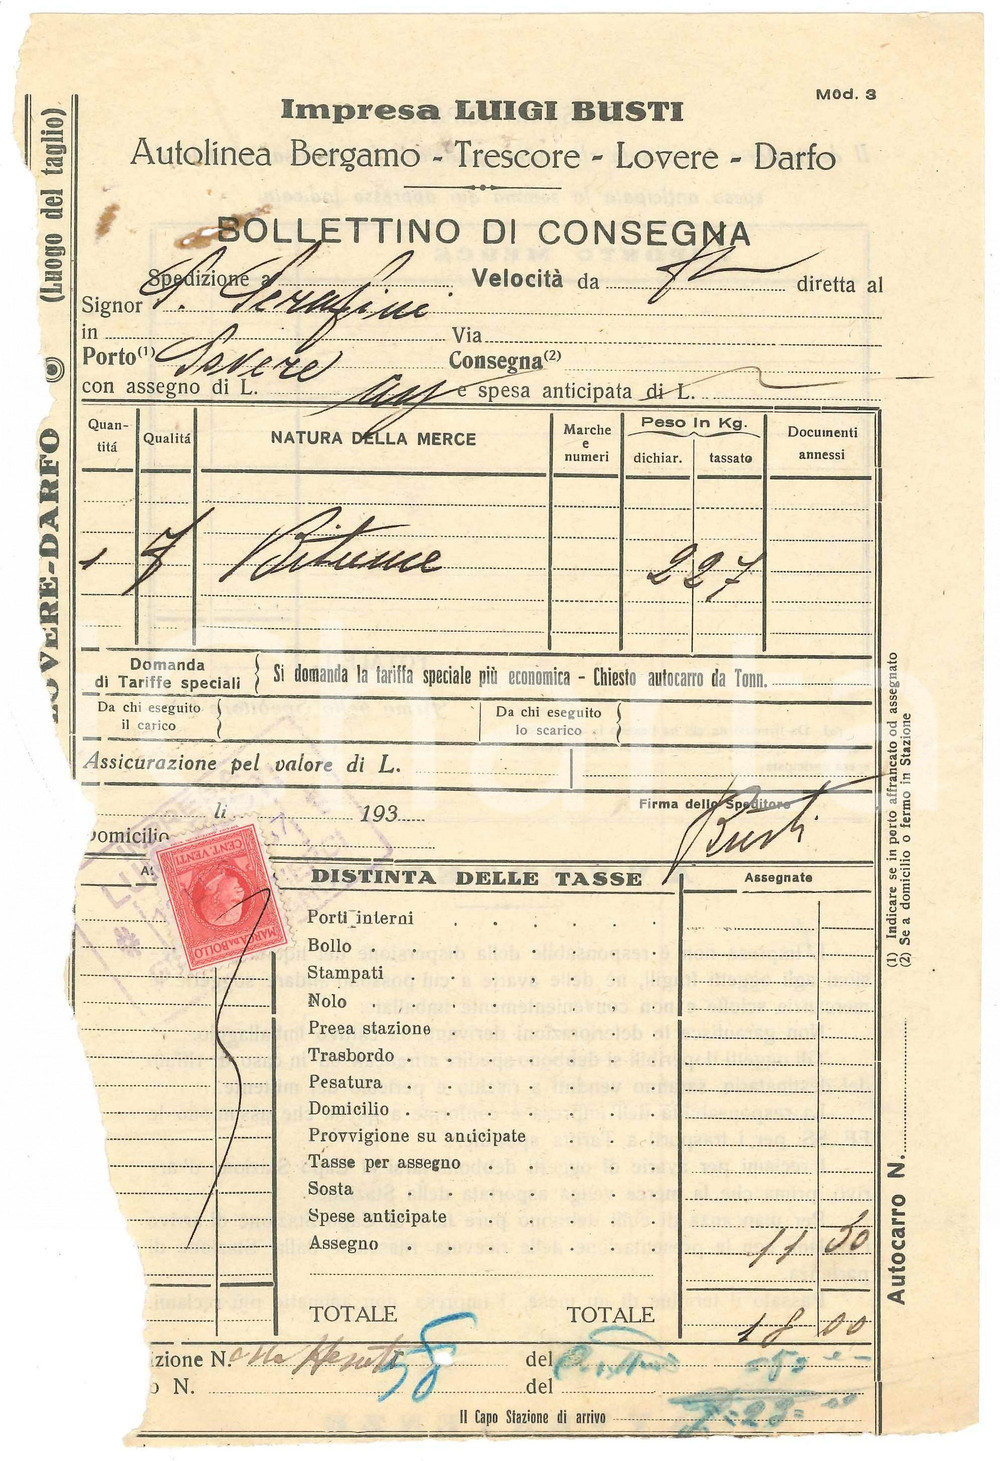 Mod. 3
Impresa LUIGI BUSTI
Autolinea Bergamo - Trescore - Lovere - Darfo
BOLLETTINO DI CONSEGNA
Spedizione a Velocità da diretta al
Signor S. Serafini
in Via
Porto(1) Sovere Consegna(2)
con assegno di L. e spesa anticipata di L.
(Luogo del taglio)
OVERE-DARFO
Quan-
titá
Qualitá
NATURA DELLA MERCE
Marche
e
numeri
Peso In Kg.
dichiar. tassato
Documenti
annessi
1 Bitume 227
Domanda
di Tariffe speciali
Si domanda la tariffa speciale più economica - Chiesto autocarro da Tonn.
Da chi eseguito
il carico
Da chi eseguito
lo scarico
Assicurazione pel valore di L.
li 193
Domicilio
Firma dello Speditore
Busti
CENT. VENTI
MARCA DA BOLLO
DISTINTA DELLE TASSE
Assegnate
Porti interni
Bollo
Stampati
Nolo
Presa stazione
Trasbordo
Pesatura
Domicilio
Provvigione su anticipate
Tasse per assegno
Sosta
Spese anticipate
Assegno 11 50
TOTALE TOTALE 18 00
zione N. del
58
o N. del
Il Capo Stazione di arrivo
(1) Indicare se in porto affrancato od assegnato
(2) Se a domicilio o fermo in Stazione
Autocarro N.